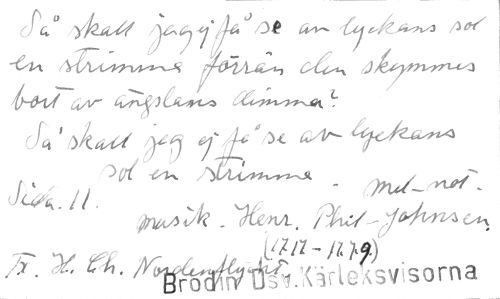 Så skall jag ej få se av lyckans sol
en strimma förrän den skymmes
bort av ängslans dimma?
Så skall jag ej få se av lyckans
sol en strimma. mel-not.
Sida. 11.
musik. Henr. Phil-Johnsen.
(1717 - 1779)
Tx. H. Ch. Nordenflycht
Brodin Osv. Kärleksvisorna